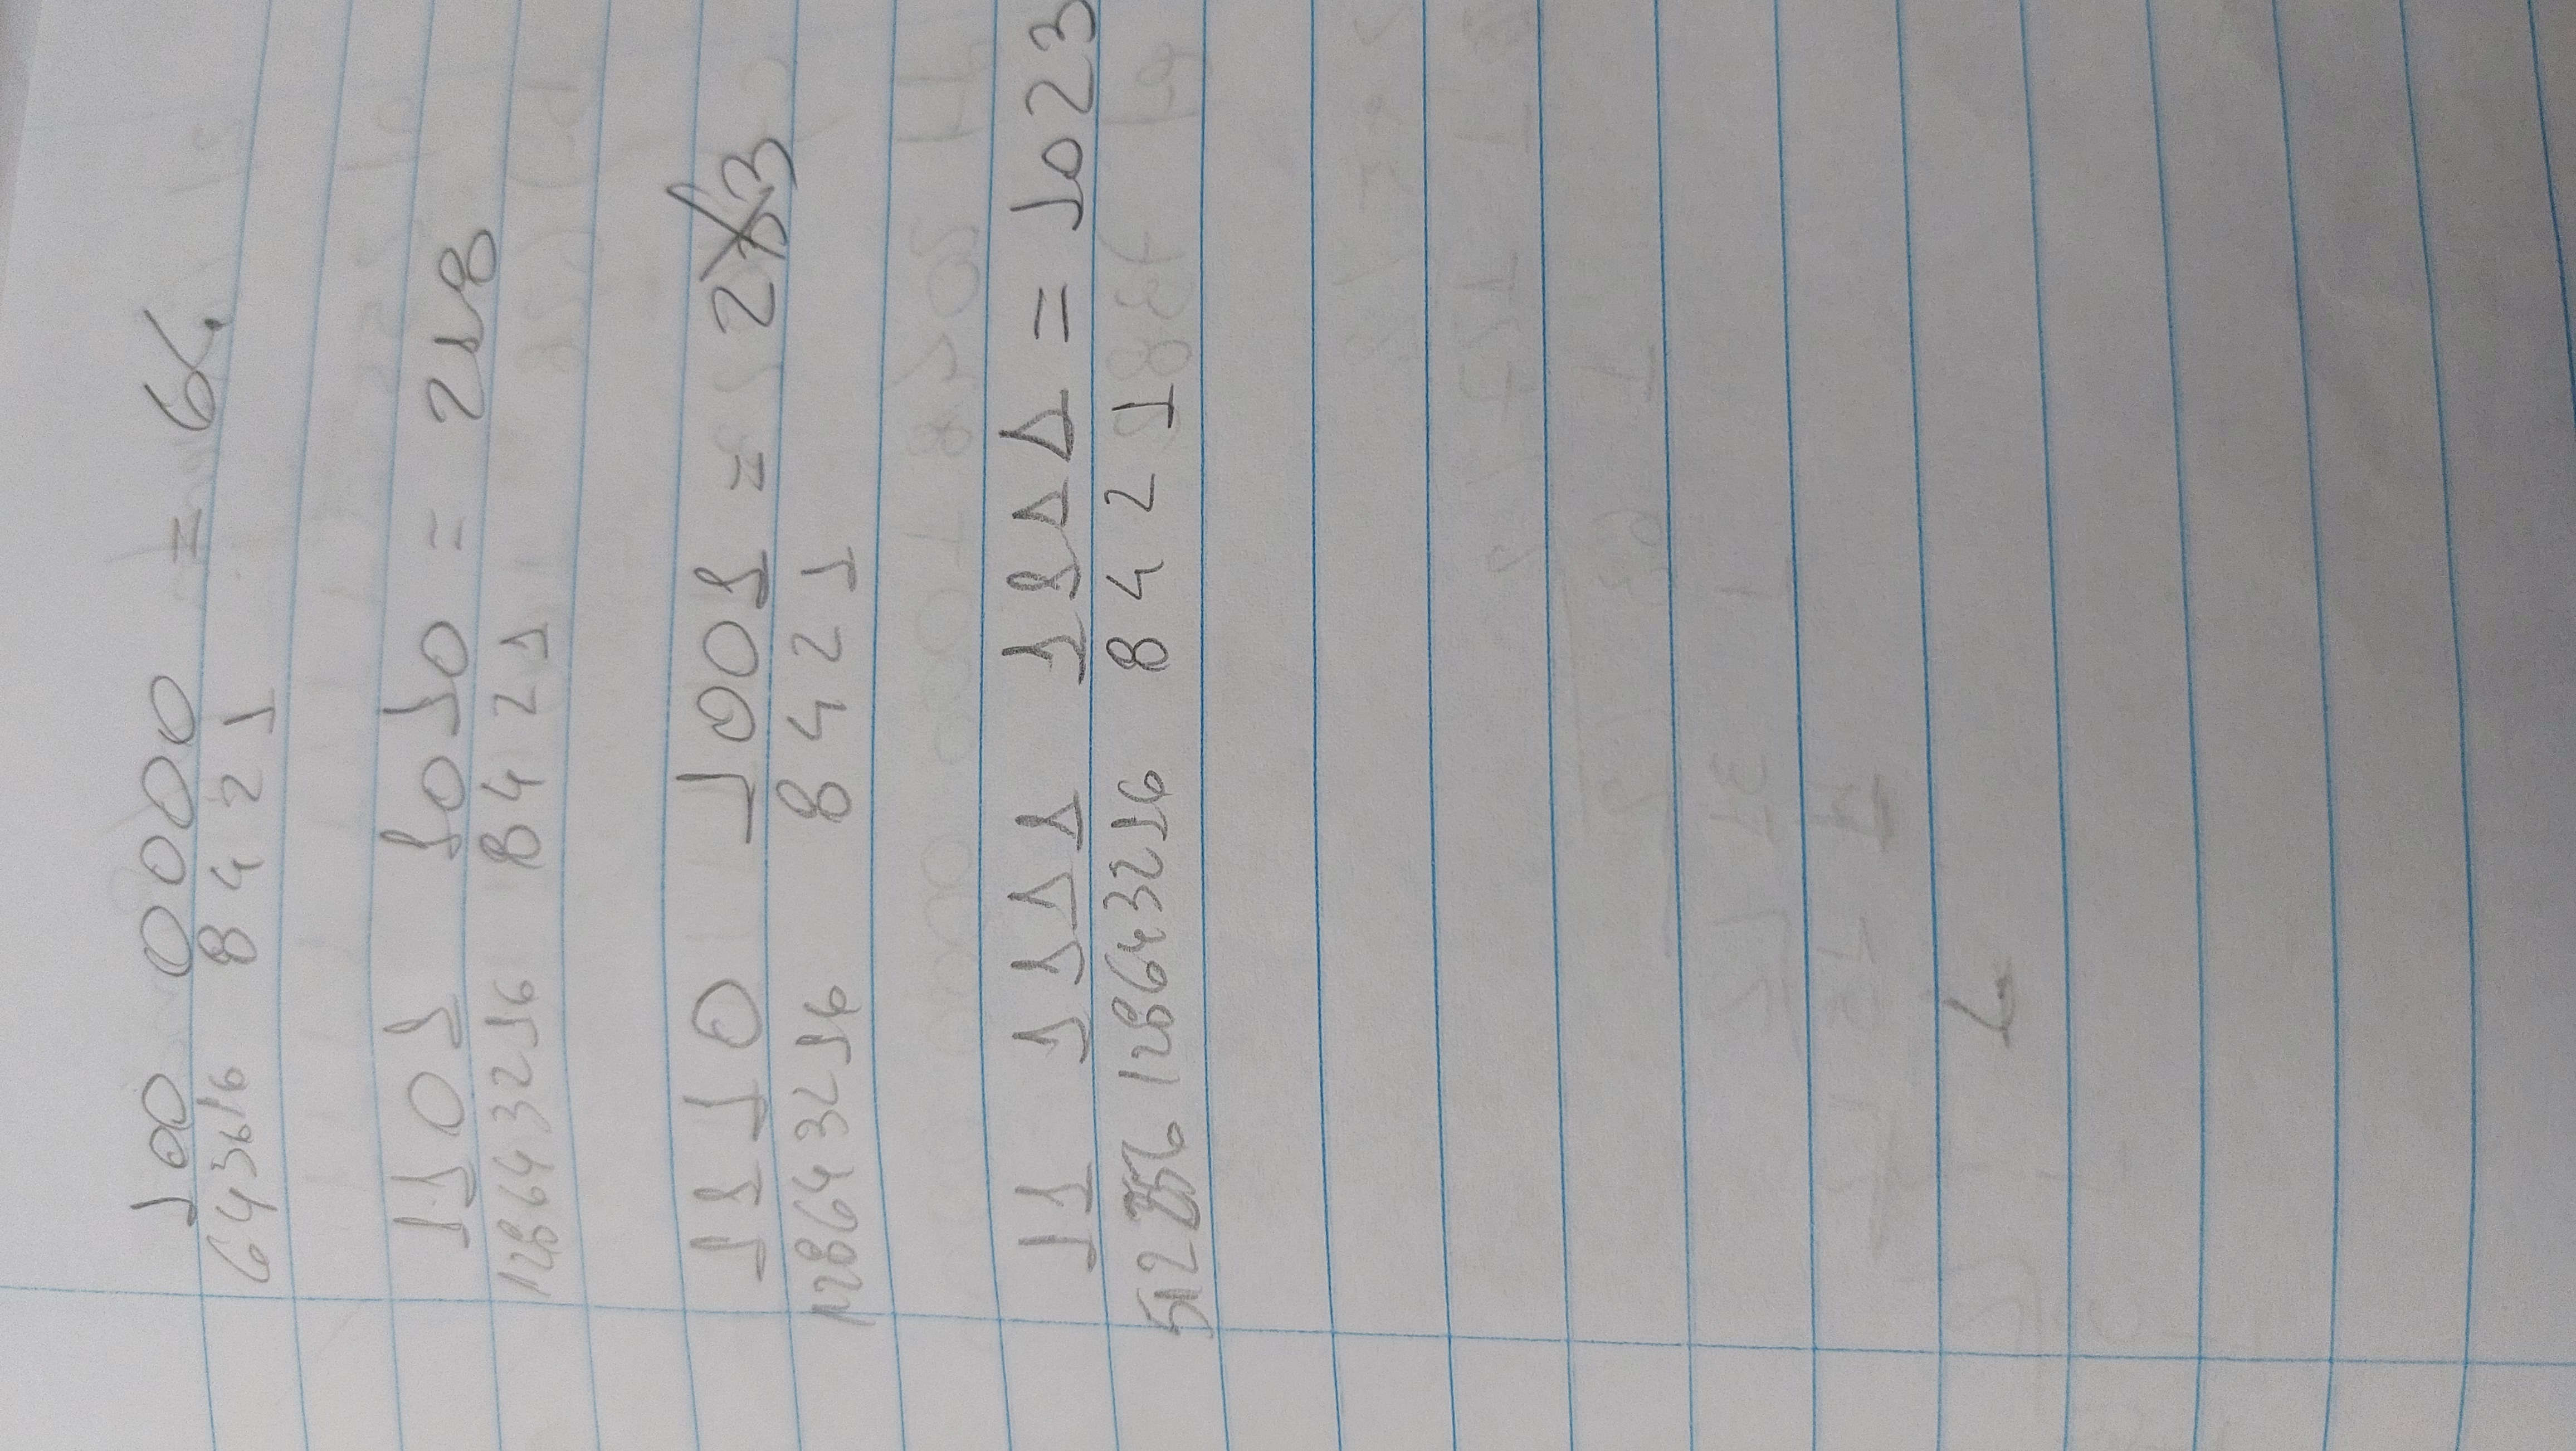 100 0000 = 64
64 36 16 8 4 2 1
1101 1010 = 218
128 64 32 16 8 4 2 1
1110 1001 =
128 64 32 16 8 4 2 1
11 1111 1111 = 1023
512 256 128 64 32 16 8 4 2 1